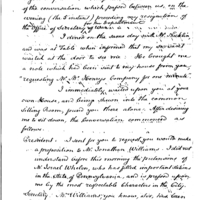 of the conversation which passed between us, on the
evening (the 2 instant) preceding my resignation of
the office of Secretary of War
I dined on the same day with Mr
and was at Table when informed that my servant
waited at the door to see me. He brought me
a note which had been sent to my house from you,
requesting Mr McHenrys Company for one minute
I immediately waited upon you at your
own House, and being shewn into the common
sitting Room, found you there alone. After desiring me
to sit down, the Conversation commenced as
follows:
President. I sent for you to request you would make
a proposition to Mr Jonathan Williams. I did not
understand before this morning the pretensions of
a Mr Jonas who has filled important stations
in the State of Pennsylvania, and is pressed upon
me by the most respectable Characters in the City.
Secretary. Mr Williams you know, also, has been